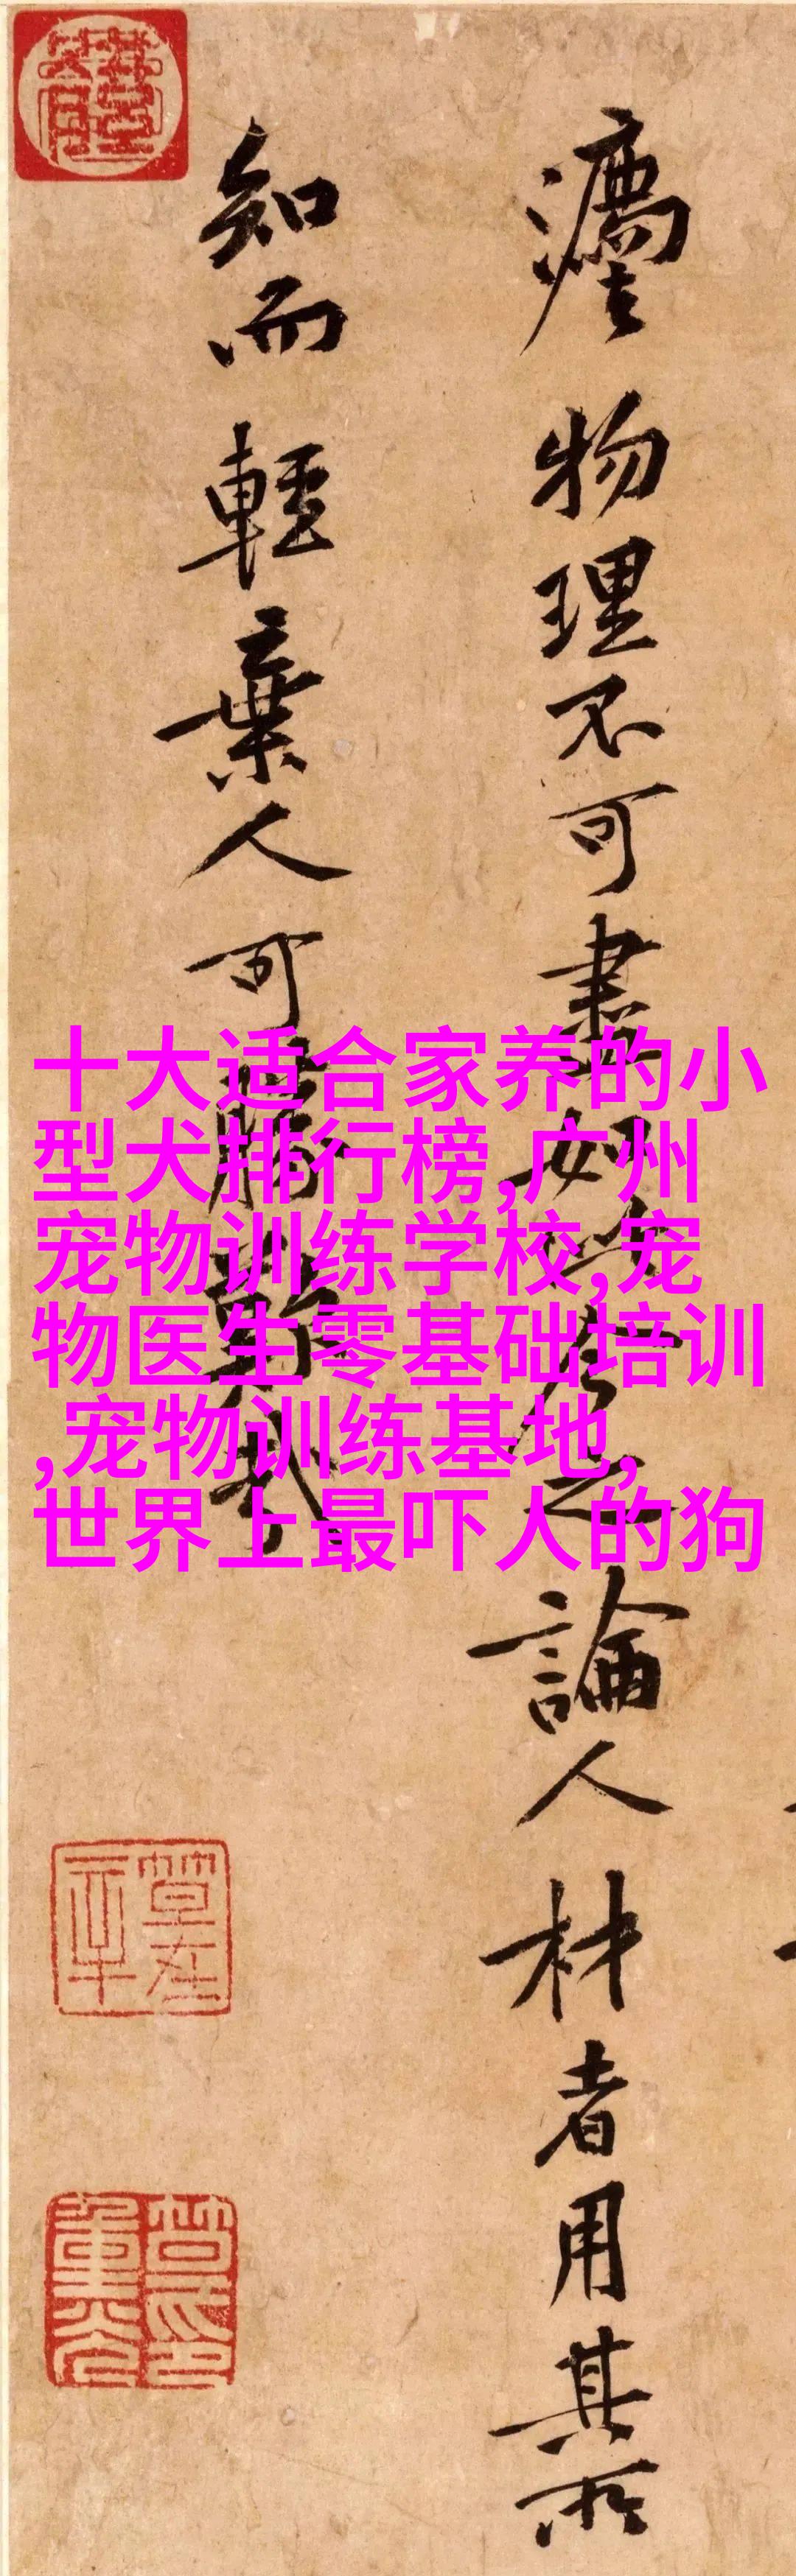 物理不可盡如此今之論人材者用其所
知而輕棄人可勝歎哉
十大适合家养的小
型犬排行榜,广州
宠物训练学校,宠
物医生零基础培训
,宠物训练基地,
世界上最吓人的狗